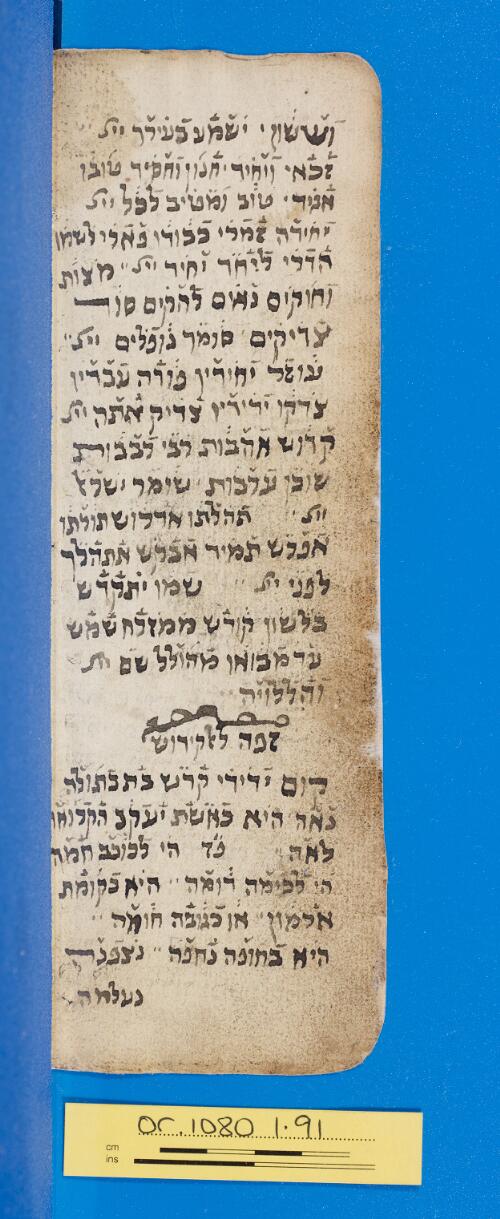 וששון ישמע בעירך ייי
צבאי ויחיד חנון וחסיד טובו
אגיד טוב ומטיב לכל ייי
יחידה צמדי כבודו באלי לשמו
הדרי ליחד יחיד ייי מצות
וחוקים נאים להקים סוד
צדיקים סומך נופלים ייי
עוצר יחידין פודה עבדיו
צדקו ידידיו צדיק אתה ייי
קדוש אהבות לבי לבבות
שוכן ערבות שומר ישראל
ייי תהלתו אדרוש תולתו
אפרש תמיד אבקש אתהלך
לפני ייי שמו יתקדש
בלשון קודש ממזרח שמש
עד מבואו מהולל שם ייי
והללויה
יפה לאקידוש
קום ידידי קדש בת בתולה
נאה היא כאשת יעקב הקלוחה
לאה כד הי לכוכב חמה
הי לבימה דומה היא בקומת
אלמון או בגובה חומה
היא בחופה נחפה נצפנה
נעלמה
or.1080 1.91
cm
ins